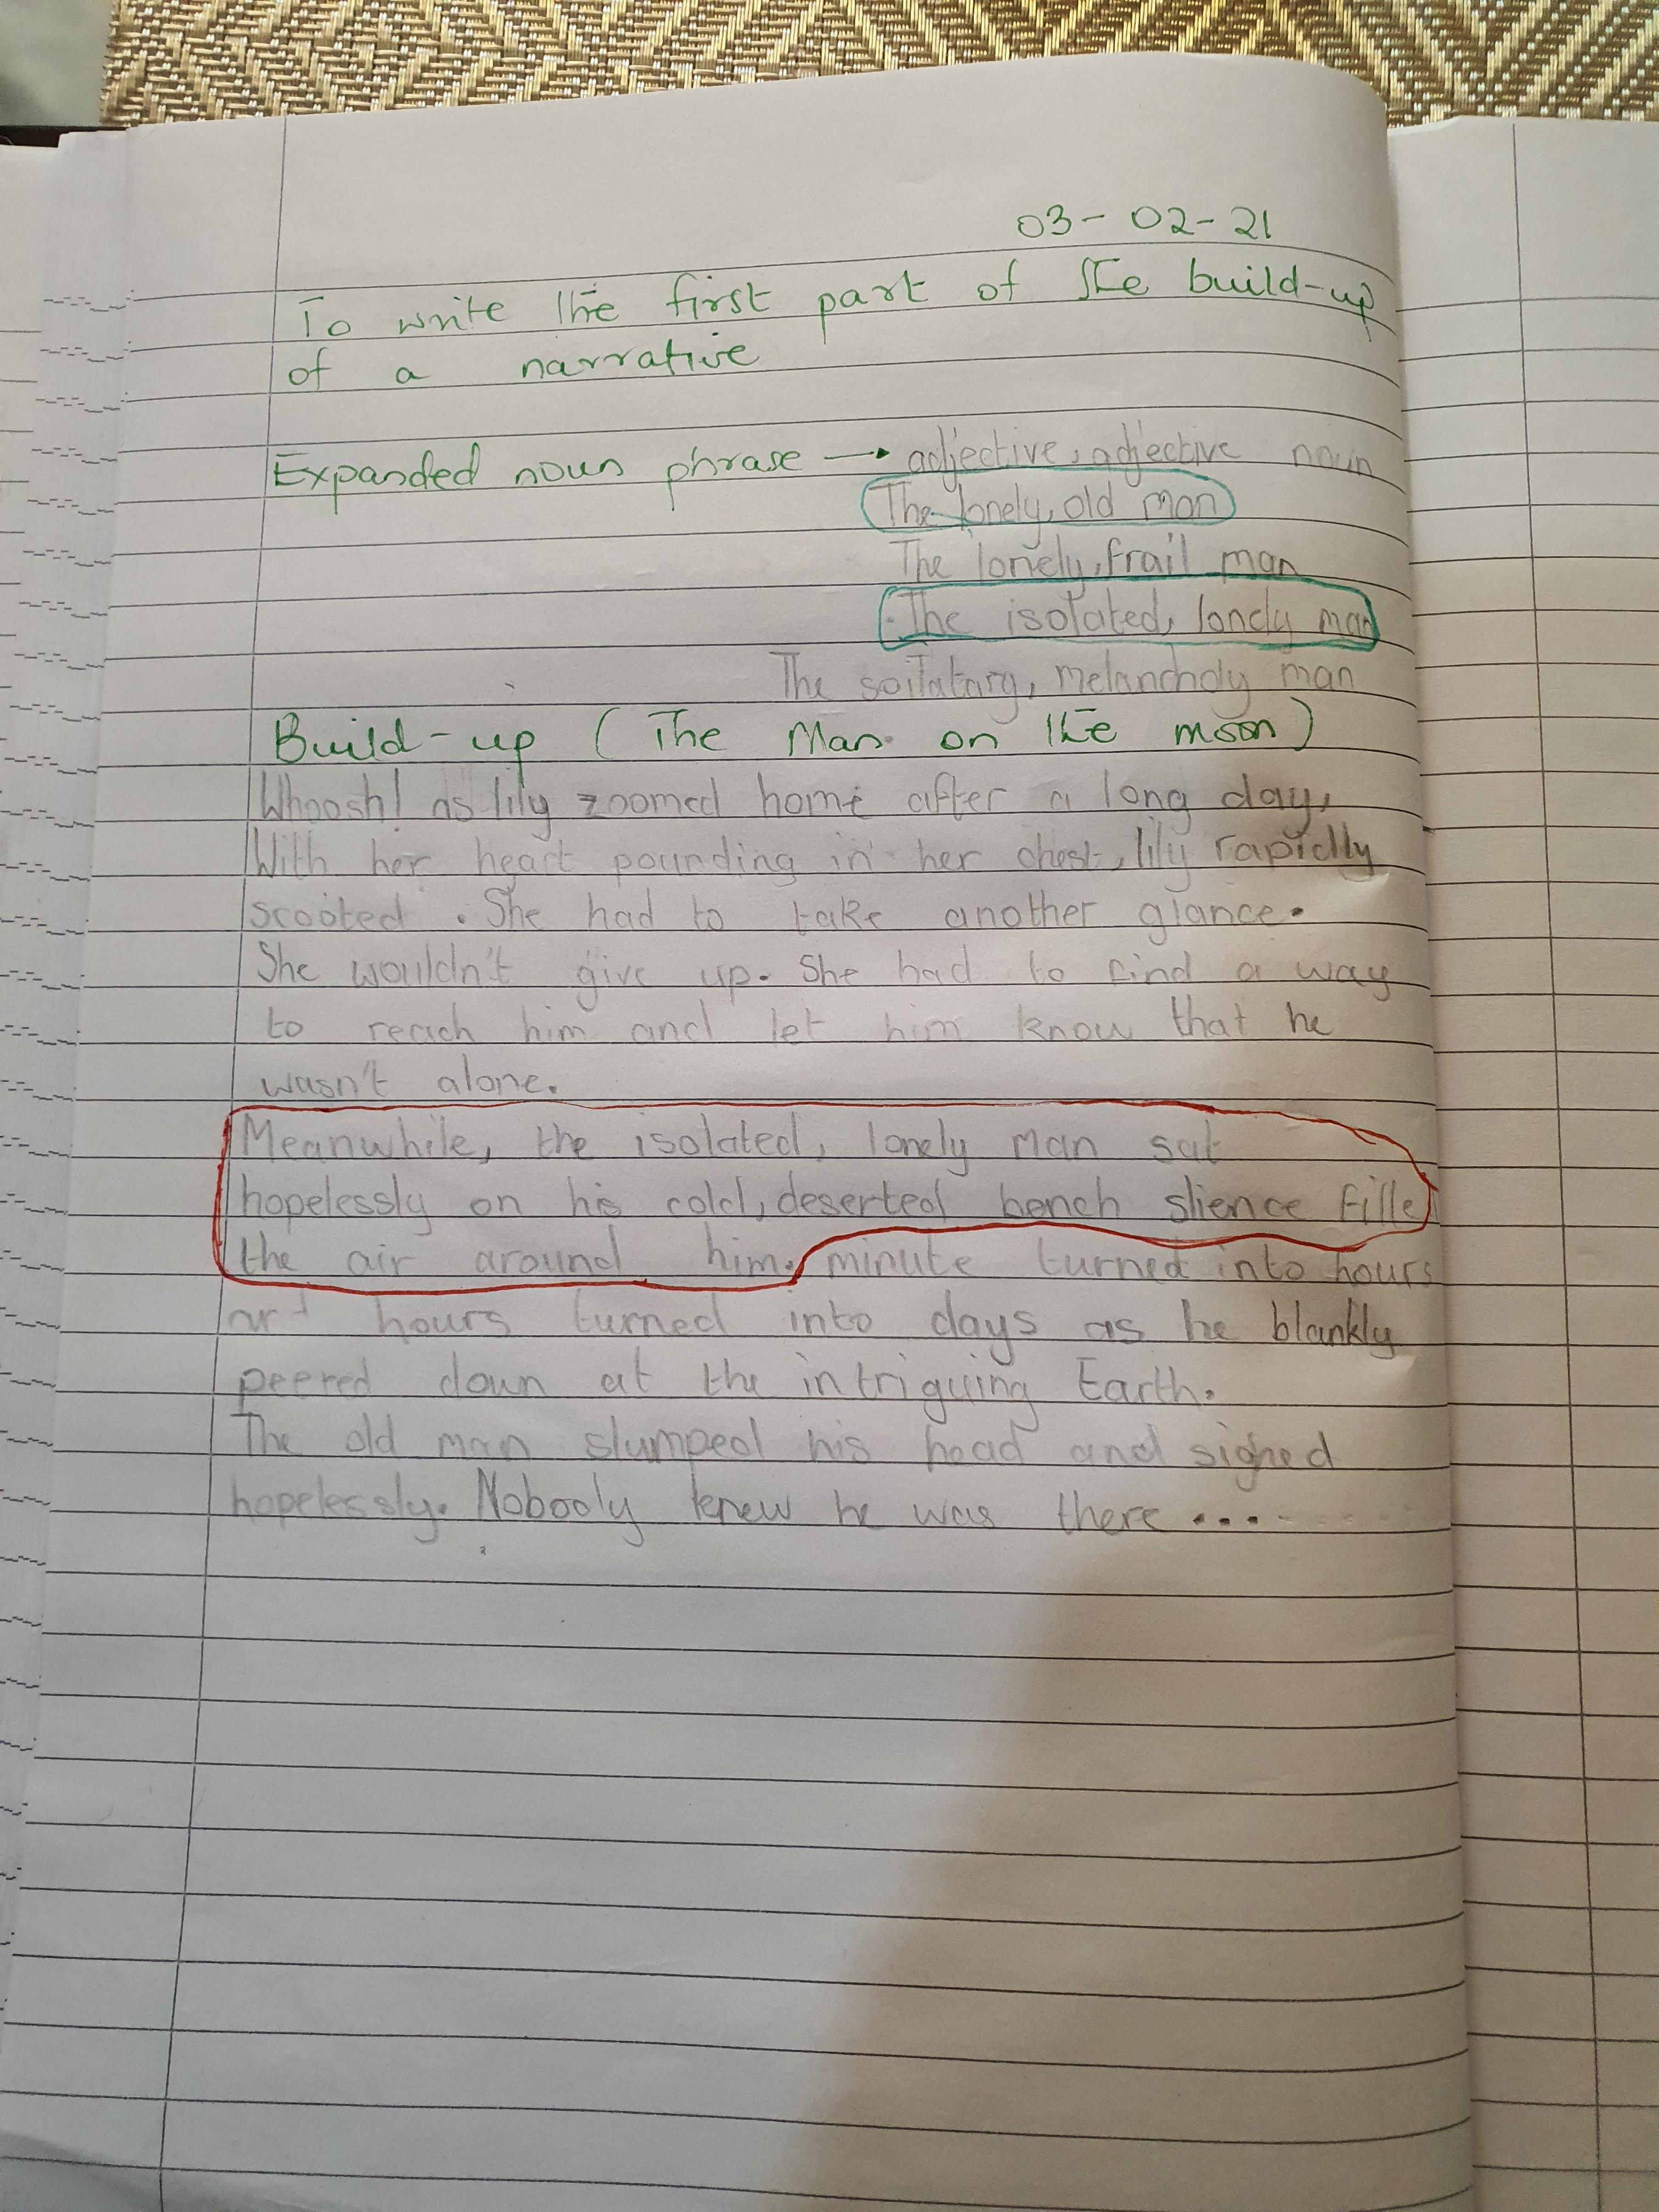 03-02-21
To write the first part of the build-up
of a narrative
Expanded noun phrase → adjective, adjective noun
The lonely, old man
The lonely, frail man
The isolated, lonely man
The soilatary, melancholy man
Build-up (The Man on the moon)
Whoosh! As lily zoomed home after a long day,
With her heart pounding in her chest, lily rapidly
scooted. She had to take another glance.
She wouldn't give up. She had to find a way
to reach him and let him know that he
wasn't alone.
Meanwhile, the isolated, lonely man sat
hopelessly on his cold, deserted bench slience fille
the air around him. minute turned into hours
and hours turned into days as he blankly
peered down at the intriguing Earth.
The old man slumped his head and sighed
hopelessly. Nobody knew he was there....